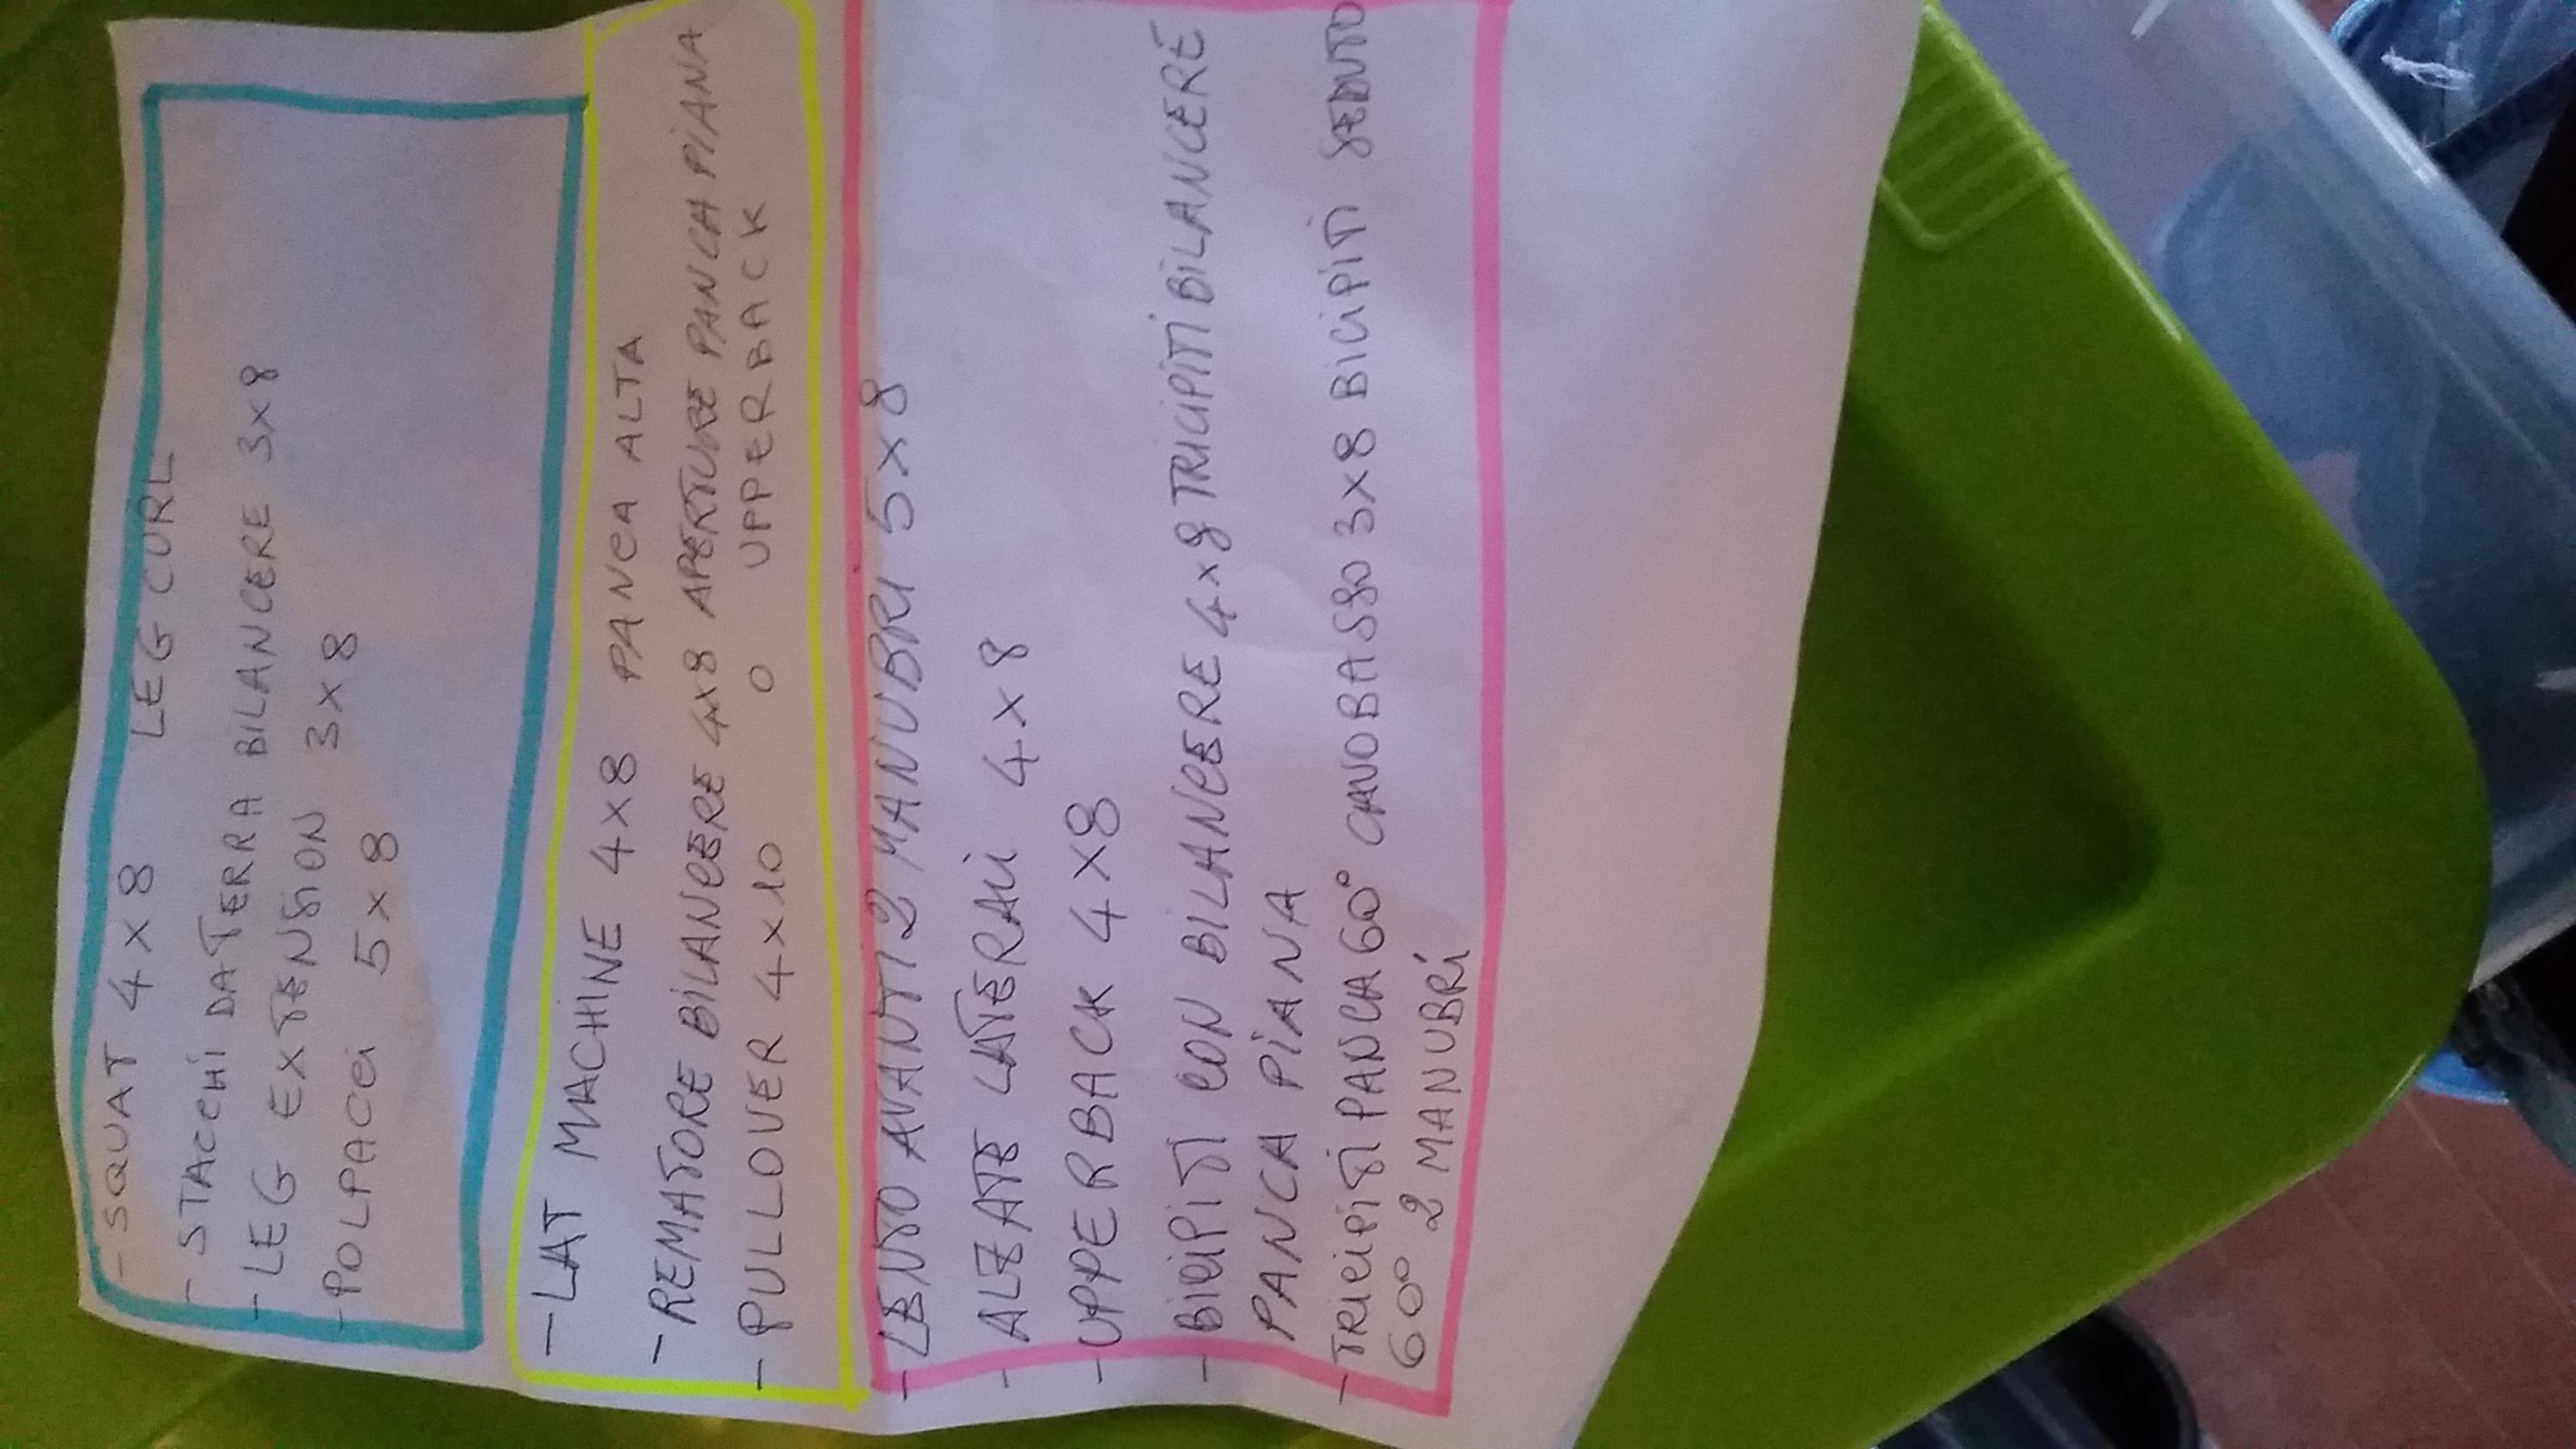 - SQUAT 4x8 LEG CURL
- STACCHI DA TERRA BILANCERE 3x8
- LEG EXTENSION 3x8
- POLPACCI 5x8
- LAT MACHINE 4x8 PANCA ALTA
- REMATORE BILANCERE 4x8 APERTURE PANCA PIANA
- PULLOVER 4x10 O UPPERBACK
- LENTO AVANTI 2 MANUBRI 5x8
- ALZATE LATERALI 4x8
- UPPERBACK 4x8
- BICIPITI CON BILANCERE 4x8 TRICIPITI BILANCERE
PANCA PIANA
- TRICIPITI PANCA 60° CAVO BASSO 3x8 BICIPITI SEDUTO
60° 2 MANUBRI